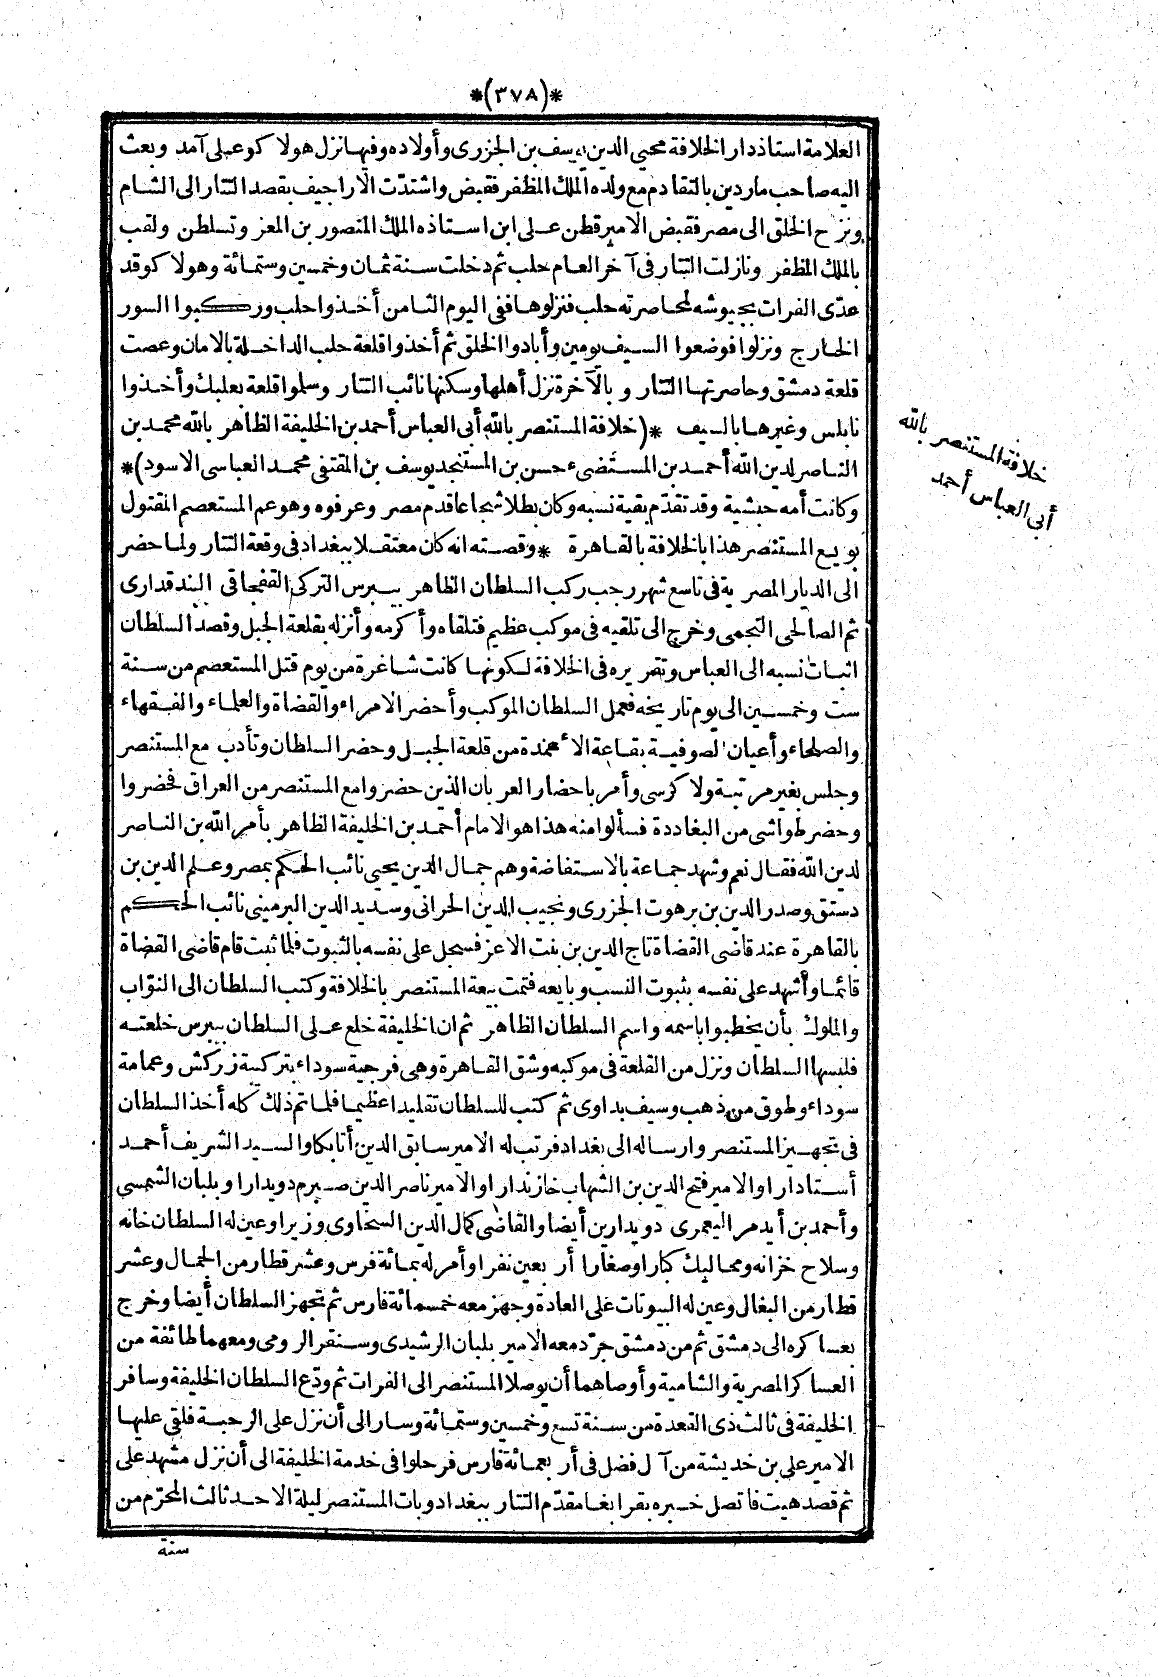 *(٣٧٨)*
العلامة استاذدار الخلافة محيى الدين يوسف بن الجزرى وأولاده وفيها نزل هولاكو على آمد وبعث
اليه صاحب ماردين بالتقادم مع ولده الملك المظفر فقبض واشتدّت الاراجيف بقصد التتار الى الشام
ونزح الخلق الى مصر فقبض الامير قطن على ابن استاذه الملك المنصور بن المعز وتسلطن ولقب
بالملك المظفر ونازلت التتار فى آخر العام حلب ثم دخلت سنة ثمان وخمسين وستمائة وهولاكو قد
عدّى الفرات بجيوشه لمحاصرته حلب فنزلوها ففى اليوم الثامن أخذوا حلب وركبوا السور
الخارج ونزلوا فوضعوا السيف يومين وأبادوا الخلق ثم أخذوا قلعة حلب الداخلة بالامان وعصت
قلعة دمشق وحاصرتها التتار وبالآخرة نزل أهلها وسكنها نائب التتار وسلموا قلعة بعلبك وأخذوا
نابلس وغيرها بالسيف *(خلافة المستنصر بالله أبى العباس أحمد بن الخليفة الظاهر بالله محمد بن
الناصر لدين الله أحمد بن المستضىء حسن بن المستنجد يوسف بن المقتفى محمد العباسى الاسود)*
وكانت أمه حبشية وقد تقدّم بقية نسبه وكان بطلا شجاعا قدم مصر وعرفوه وهو عم المستعصم المقتول
بويع المستنصر هذا بالخلافة بالقاهرة * وقصته انه كان معتقلا ببغداد فى وقعة التتار ولما حضر
الى الديار المصرية فى تاسع شهر رجب ركب السلطان الظاهر بيبرس التركى القفجاقى البندقدارى
ثم الصالحى النجمى وخرج الى تلقيه فى موكب عظيم فتلقاه وأكرمه وأنزله بقلعة الجبل وقصد السلطان
اثبات نسبه الى العباس وتقريره فى الخلافة لكونها كانت شاغرة من يوم قتل المستعصم من سنة
ست وخمسين الى يوم تاريخه فعمل السلطان الموكب وأحضر الامراء والقضاة والعلماء والفقهاء
والصلحاء وأعيان الصوفية بقاعة الأعمدة من قلعة الجبل وحضر السلطان وتأدب مع المستنصر
وجلس بغير مرتبة ولا كرسى وأمر باحضار العربان الذين حضروا مع المستنصر من العراق فحضروا
وحضر طواشى من البغاددة فسألوا منه هذا هو الامام أحمد بن الخليفة الظاهر بأمر الله بن الناصر
لدين الله فقال نعم وشهد جماعة بالاستفاضة وهم جمال الدين يحيى نائب الحكم بمصر وعلم الدين بن
دستق وصدر الدين بن برهوت الجزرى ونجيب الدين الحرانى وسديد الدين البرمينى نائب الحكم
بالقاهرة عند قاضى القضاة تاج الدين بن بنت الاعز فسجل على نفسه بالثبوت فلما ثبت قام قاضى القضاة
قائما وأشهد على نفسه بثبوت النسب وبايعه فتمت بيعة المستنصر بالخلافة وكتب السلطان الى النوّاب
والملوك بأن يخطبوا باسمه واسم السلطان الظاهر ثم ان الخليفة خلع على السلطان بيبرس خلعته
فلبسها السلطان ونزل من القلعة فى موكبه وشق القاهرة وهى فرجية سوداء بتركيبة زركش وعمامة
سوداء وطوق من ذهب وسيف بداوى ثم كتب للسلطان تقليدا عظيما فلما تم ذلك كله أخذ السلطان
فى تجهيز المستنصر وارساله الى بغداد فرتب له الامير سابق الدين أتابكا والسيد الشريف أحمد
أستادارا والامير فتح الدين بن الشهاب خازندارا والامير ناصر الدين صيرم دويدارا وبلبان الشمسى
وأحمد بن أيدمر اليعمرى دويدارين أيضا والقاضى كمال الدين السخاوى وزيرا وعين له السلطان خانه
وسلاح خزانه ومماليك كبارا وصغارا أربعين نفرا وأمر له بمائة فرس وعشر قطار من الجمال وعشر
قطار من البغال وعين له البيوتات على العادة وجهز معه خمسمائة فارس ثم تجهز السلطان أيضا وخرج
بعساكره الى دمشق ثم من دمشق جرّد معه الامير بلبان الرشيدى وسنقر الرومى ومعهما طائفة من
العساكر المصرية والشامية وأوصاهما أن يوصلا المستنصر الى الفرات ثم ودّع السلطان الخليفة وسافر
الخليفة فى ثالث ذى القعدة من سنة تسع وخمسين وستمائة وسار الى أن نزل على الرحبة فلقى عليها
الامير على بن خديشة من آل فضل فى أربعمائة فارس فرحلوا فى خدمة الخليفة الى أن نزل مشهد على
ثم قصد هيت فاتصل خبره بقرابغا مقدّم التتار ببغداد وبات المستنصر ليلة الاحد ثالث المحرّم من
سنة
خلافة المستنصر بالله
أبى العباس أحمد